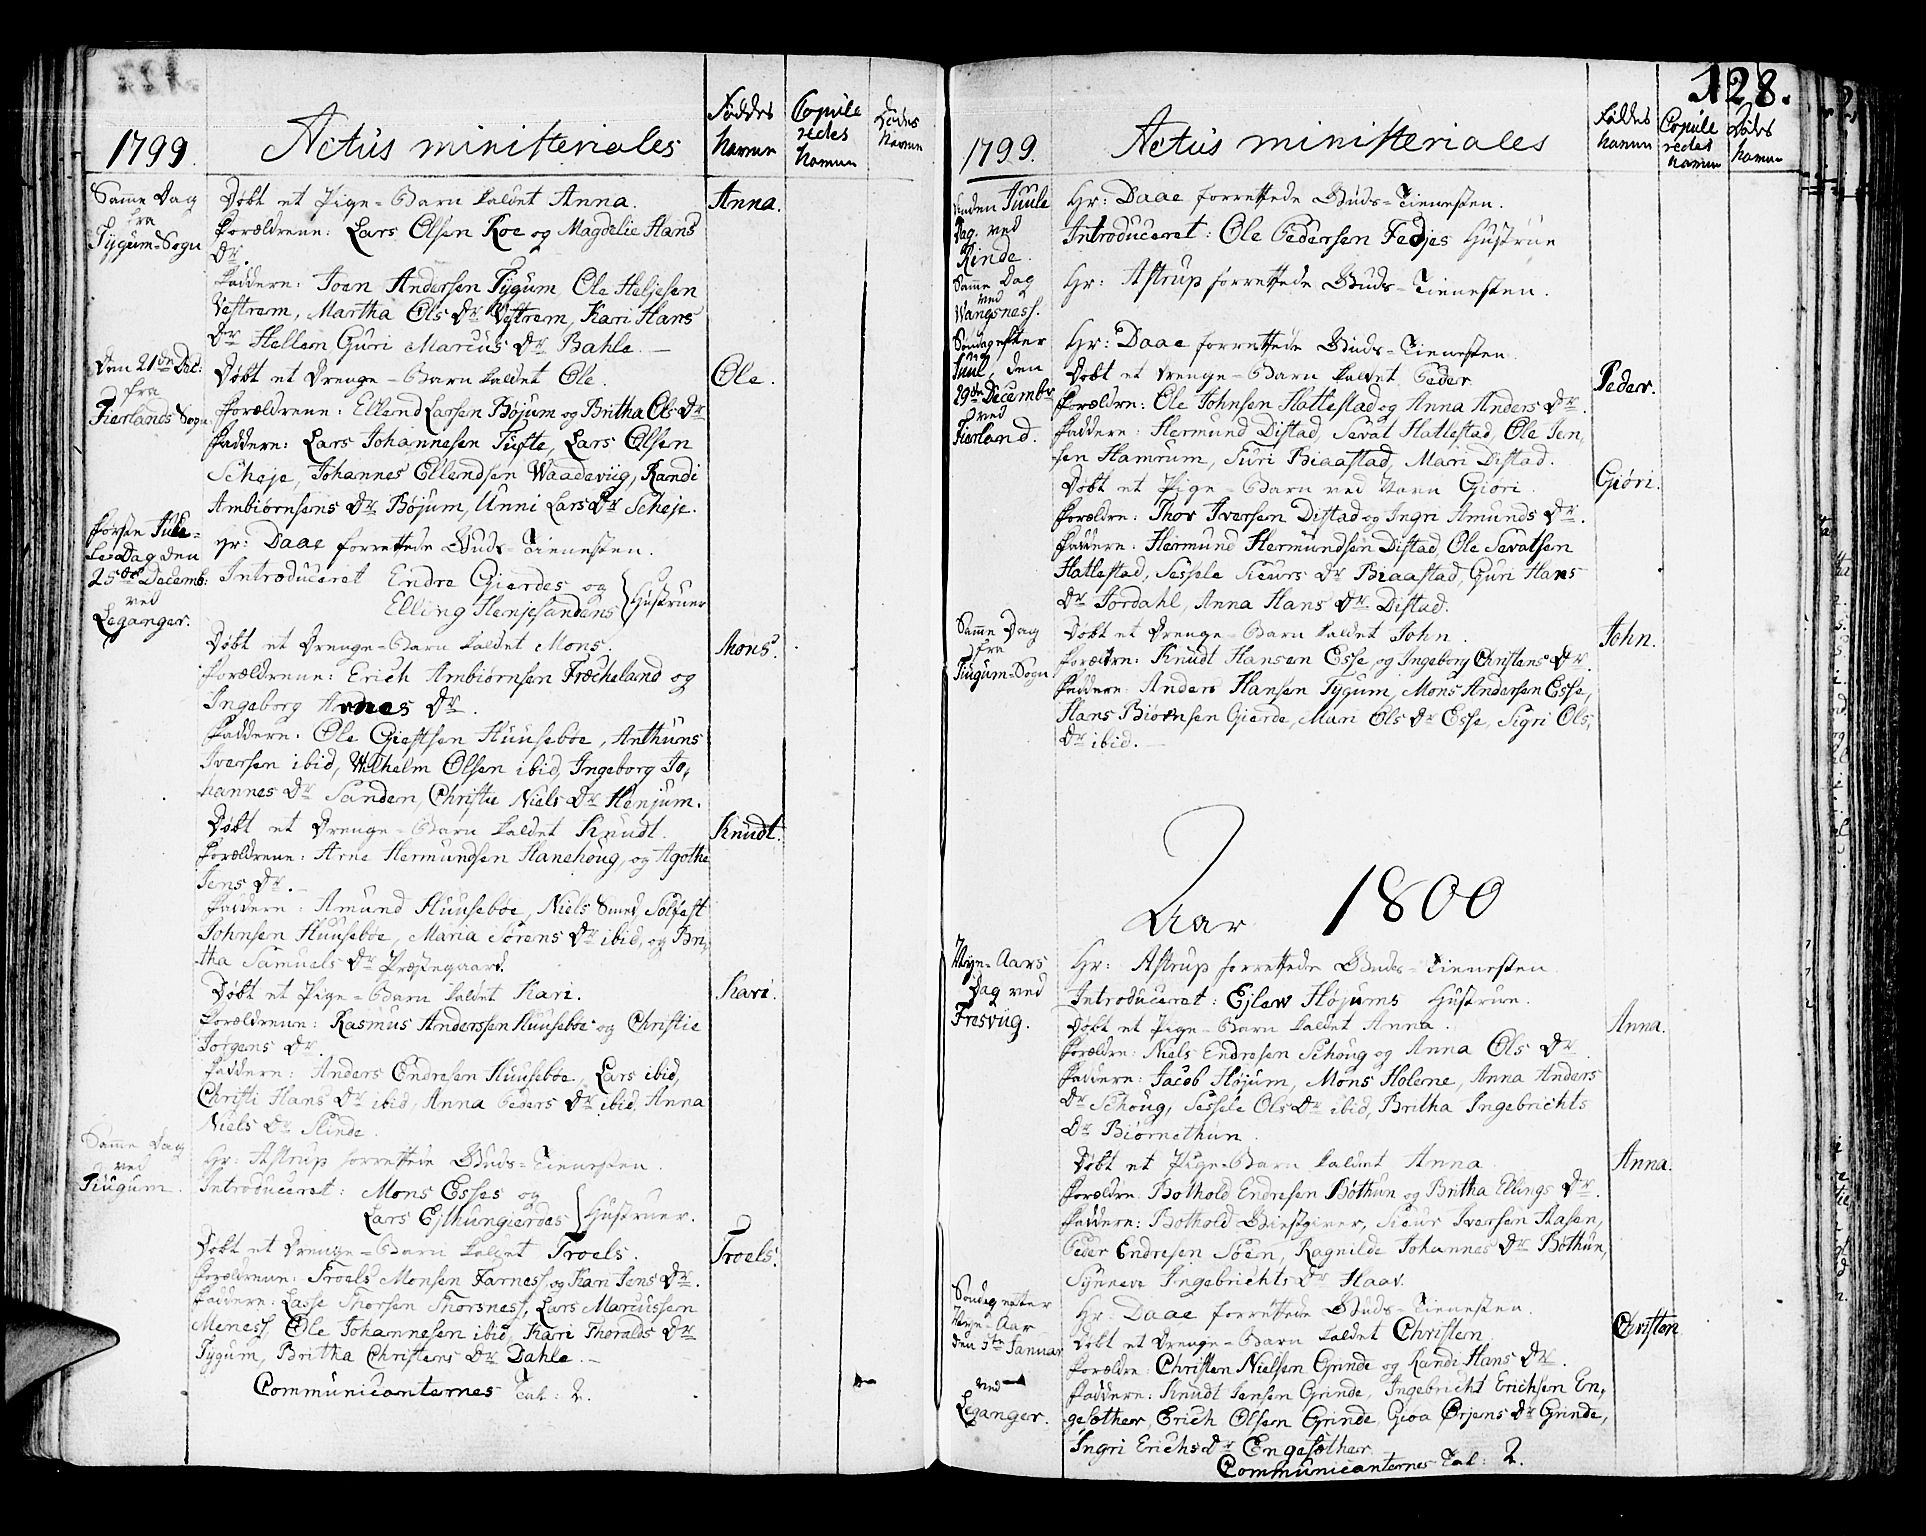 1799.
Actus ministeriales
Føddes Navne
Copuleredes Navne
Dødes Navne
Samme Dag
fra
Tygum-Sogn
Døbt et Pige-Barn kaldet Anna.
Anna.
Forældrene: Lars Olsen Roe og Magdelie Hans
Dr.
Faddere: Joen Andersen Tygum, Ole Heljesen
Vestrem, Martha Ols Dr Vestrem, Kari Hans
Dr Hellem Guri Marcus Dr Bahle. —
Den 21de Dec:
fra
Fierlands Sogn
Døbt et Drenge-Barn kaldet Ole.
Ole.
Forældrene: Ellend Larsen Bøjum og Britha Ols Dr
Faddere: Lars Johannesen Tufte, Lars Olsen
Scheje, Johannes Ellendsen Waadeviig, Randi
Ambiørnsens Dr Bøjum, Unni Lars Dr Scheje.
Første Jule-
Dag den
25de Decemb:
ved
Leganger.
Hr: Daae forrettede Guds-Tienesten.
Introduceret Endre Gierdes og
Elling Henjesandens } Hustruer
Døbt et Drenge-Barn kaldet Mons.
Mons.
Forældrene: Erich Ambiørnsen Fræcheland og
Ingeborg Arnes Dr.
Faddere: Ole Giestsen Huusebøe, Anthuns
Iversen ibid, Wilhelm Olsen ibid, Ingeborg Jo,
hannes Dr Sanden, Christie Niels Dr Henjum.
Døbt et Drenge-Barn kaldet Knudt.
Knudt.
Forældrene: Arne Hermundsen Hanehoug, og Agothe
Jens Dr. —
Faddere: Amund Huusebøe, Niels Smed, Solfest
Johnsen Huusebøe, Maria Sørens Dr ibid, og Bri,
tha Samuels Dr Præstegaard.
Døbt et Pige-Barn kaldet Kari.
Kari.
Forældrene: Rasmus Anderssen Huusebøe og Christie
Jørgens Dr.
Faddere: Anders Endresen Huusebøe, Lars ibid,
Christi Hans Dr ibid, Anna Peders Dr ibid, Anna
Niels Dr Slinde.
Samme Dag
ved
Tiugum.
Hr: Astrup forrettede Guds-Tienesten.
Introduceret: Mons Esses og
Lars Ejthungierdes } Hustruer.
Døbt et Drenge-Barn kaldet Troels.
Troels.
Forældrene: Troels Monsen Farness, og Kari Jens Dr.
Faddere: Lasse Thorsen Thorsness, Lars Marcussen
Meness, Ole Johannesen ibid, Kari Thoralds Dr
Tygum, Britha Christens Dr Dahle. —
Communicanternes Tal: 2.
128.
1799.
Actus ministeriales
Føddes Navne
Copuleredes Navne
Dødes Navne
Anden Juule
Dag. ved
Rinde.
Hr: Daae forrettede Guds-Tienesten.
Introduceret: Ole Pedersen Fedjes Hustrue
Samme Dag
ved
Wangsness.
Hr: Astrup forrettede Guds-Tienesten.
Søndag efter
Juul, den
29de Decembr
ved
Fierland.
Hr: Daae forrettede Guds-Tienesten.
Døbt et Drenge-Barn kaldet Peder.
Peder.
Forældre: Ole Johnsen Hattestad og Anna Anders Dr.
Faddere: Hermund Distad, Sevat Hatlestad, Ole Jen,
sen Hamrum, Turi Biaastad, Mari Distad.
Døbt et Pige-Barn ved Navn Giøri.
Giøri.
Forældre: Thor Iversen Distad og Ingri Amunds Dr.
Faddere: Hermund Hermundsen Distad, Ole Sevatsen
Hatlestad, Sessele Sieurs Dr Biaastad, Guri Hans
Dr Jordahl, Anna Hans Dr Distad.
Samme Dag
fra
Tiugum-Sogn
Døbt et Drenge-Barn kaldet John.
John.
Forældre: Knudt Hansen Esse, og Ingeborg Christens Dr.
Faddere: Anders Hansen Tygum, Mons Andersen Esse,
Hans Biørnsen Gierde, Mari Ols Dr Esse, Sigri Ols,
Dr ibid. —
Aar 1800
Nye-Aars
Dag ved
Fresviig.
Hr: Astrup forrettede Guds-Tienesten.
Introduceret: Ejlew Højums Hustrue.
Døbt et Pige-Barn kaldet Anna.
Anna.
Forældre: Niels Endresen Schoug og Anna Ols Dr.
Faddere: Jacob Højum, Mons Holene, Anna Anders
Dr Schoug, Sessele Ols Dr ibid, Britha Ingebrichts
Dr Biørnethun.
Døbt et Pige-Barn kaldet Anna.
Anna.
Forældre: Bothold Endresen Bøthun og Britha Ellings Dr.
Faddere: Bothold Giestgiver, Sieur Iversen Aasen,
Peder Endresen Soen, Ragnilde Johannes Dr Bøthun,
Synneve Ingebrichts Dr Haav.
Søndag efter
Nye-Aar
den 5te Januar
ved
Leganger.
Hr. Daae forrettede Guds-Tienesten.
Døbt et Drenge-Barn kaldet Christen.
Christen
Forældre: Christen Nielsen Grinde og Randi Hans Dr.
Faddere: Knudt Jensen Grinde, Ingebricht Erichsen En,
gesæther, Erich Olsen Grinde, Gioa Ørjens Dr Grinde,
Ingri Erichs Dr Engesæther.
Communicanternes Tal: 2.